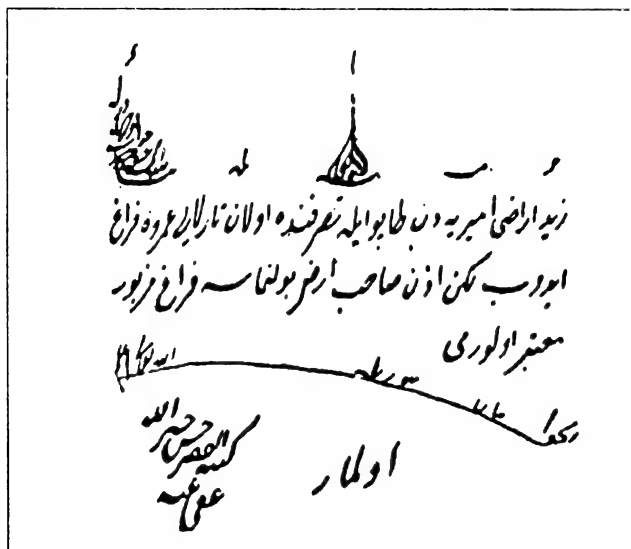 زيد اراضئ اميريه دن طابو ايله تصرفنده اولان تارلالرى عمروه فراغ
ايدوب لكن اذن صاحب ارض بولنماسه فراغ مزبور
معتبر اولورمى
الله اعلم
اولماز
كتبه الفقير حسن خير الله
عفى عنه